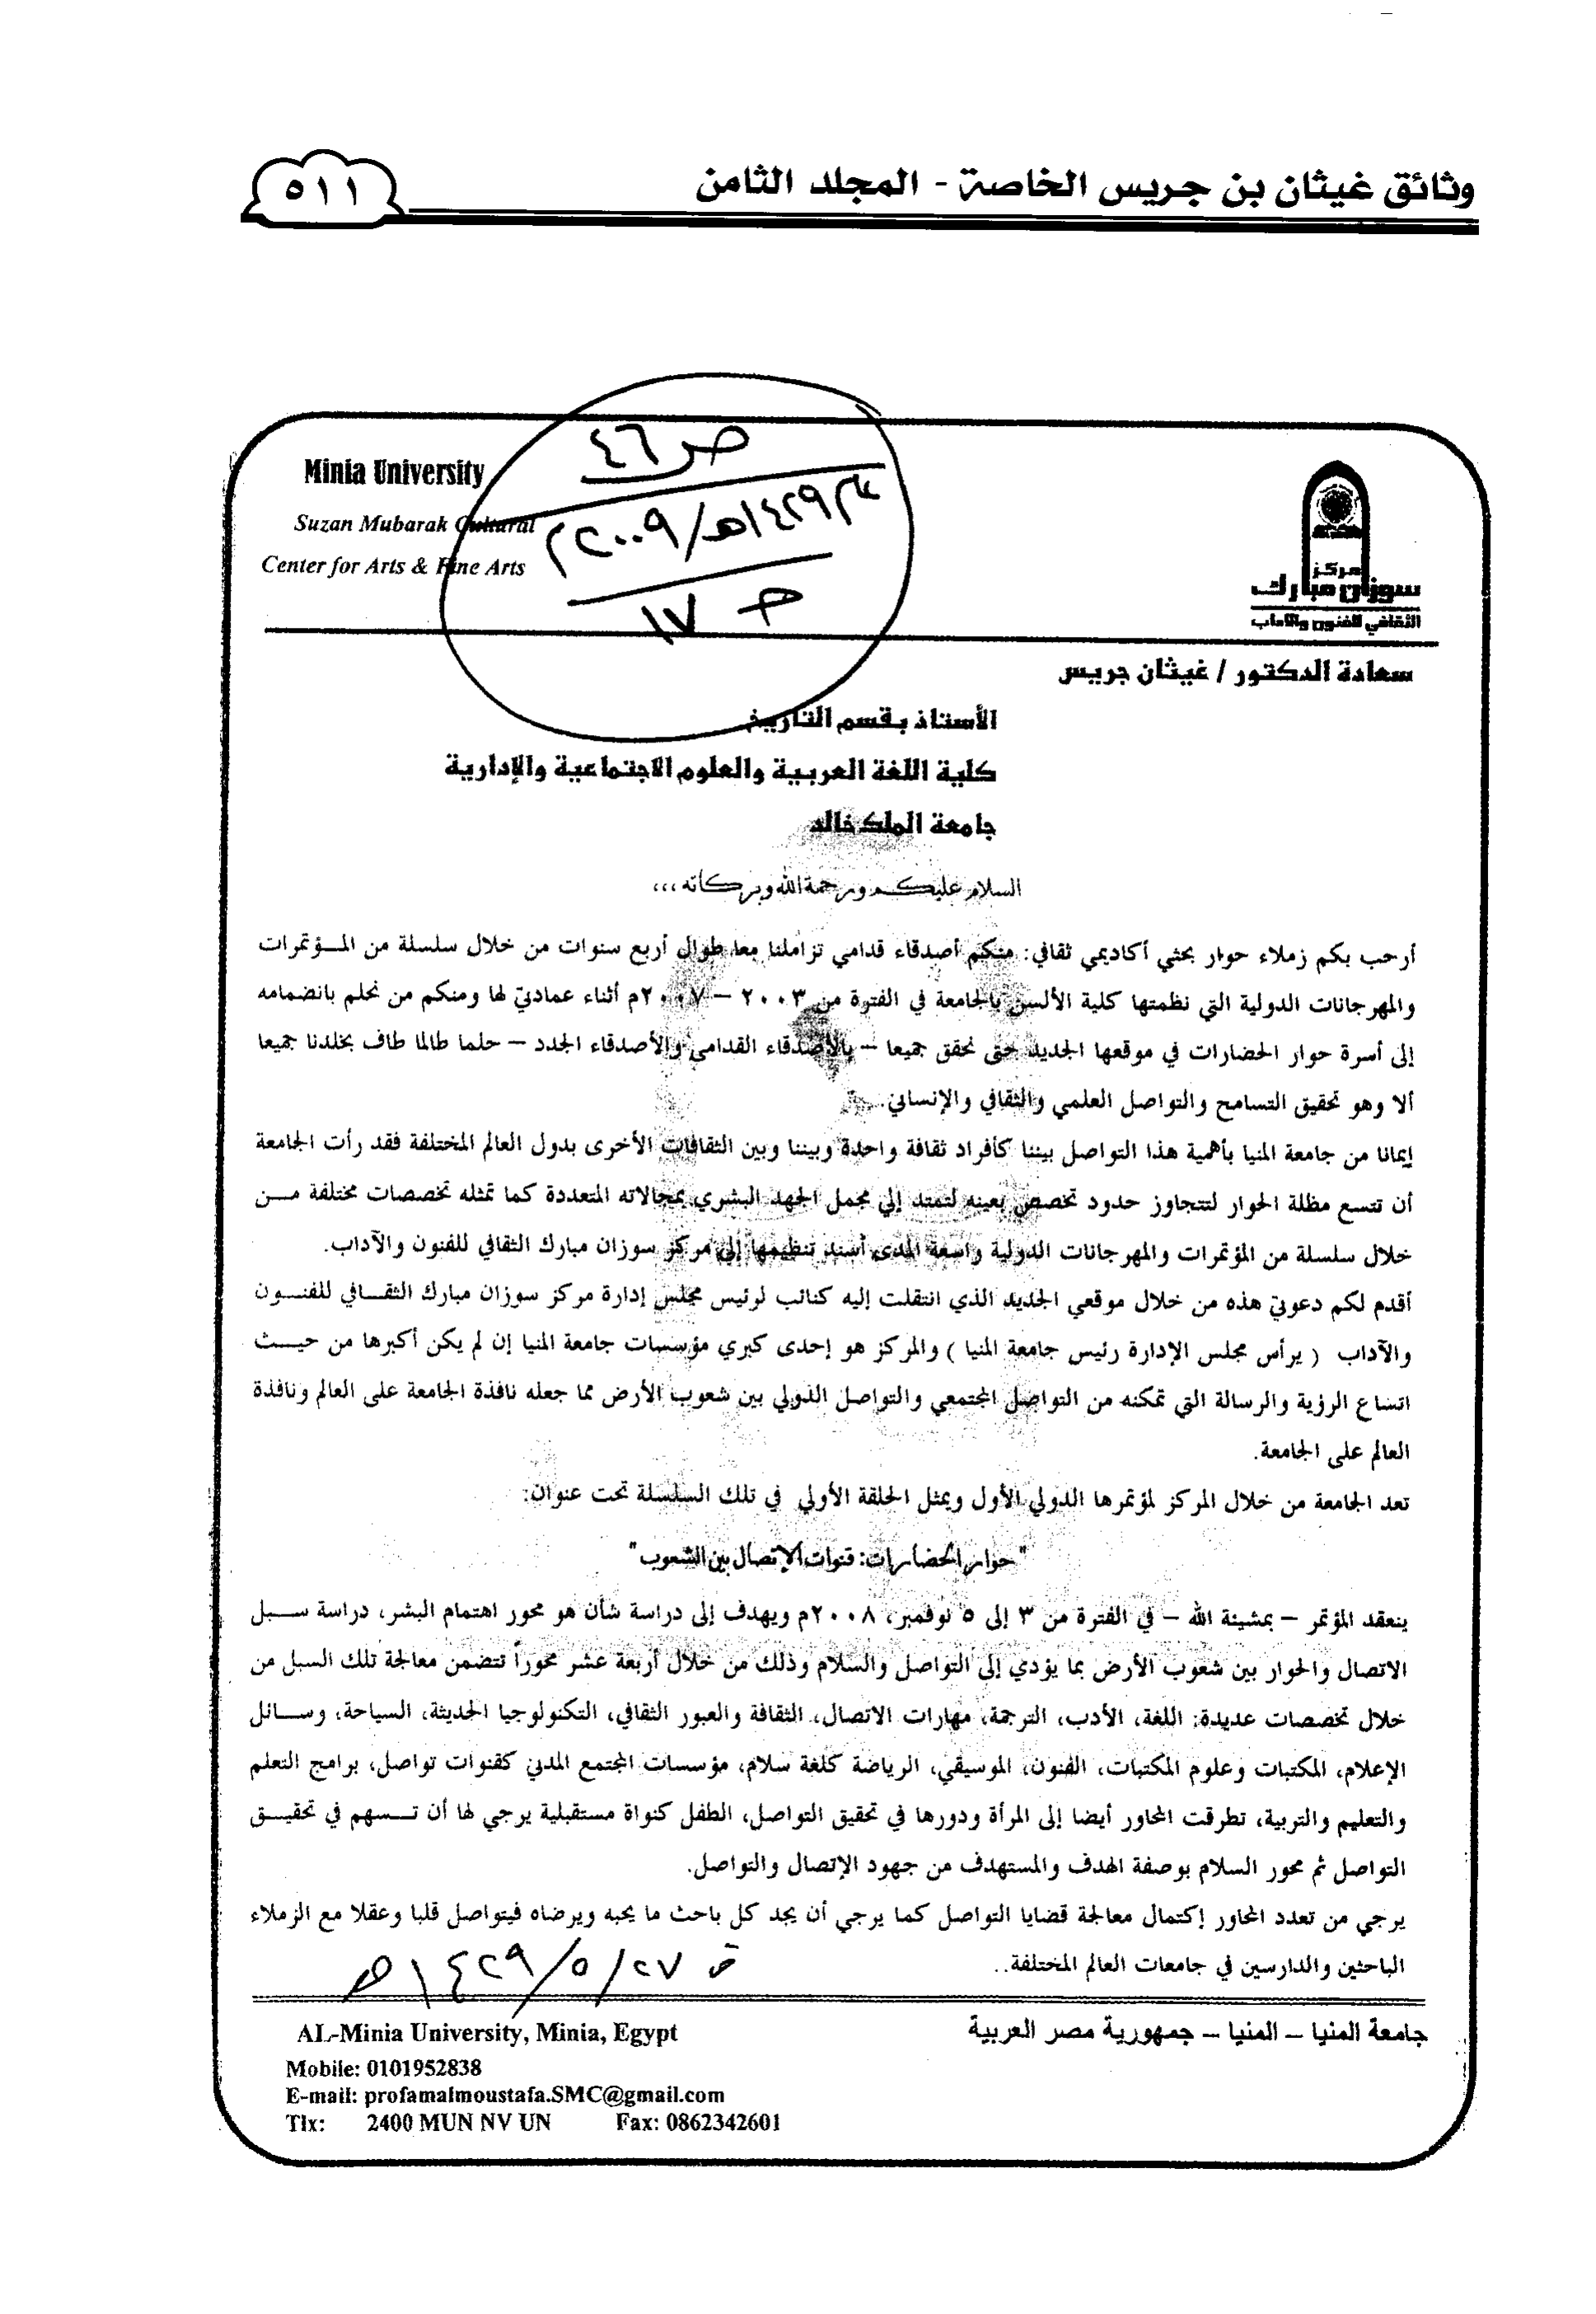 وثائق غيثان بن جريس الخاصة - المجلد الثامن
٥١١
Minia University
Suzan Mubarak Cultural
Center for Arts & Fine Arts
ص ٤٦
١٤٢٩هـ/٢٠٠٩م
ح ١٧
مركز
سوزان مبارك
الثقافي للفنون والآداب
سعادة الدكتور / غيثان جريس
الأستاذ بقسم التاريخ
كلية اللغة العربية والعلوم الاجتماعية والإدارية
جامعة الملك خالد
السلام عليكم ورحمة الله وبركاته ،،،
أرحب بكم زملاء حوار بحثي أكاديمي ثقافي: منكم أصدقاء قدامي تزاملنا معا طوال أربع سنوات من خلال سلسلة من المـؤتمرات
والمهرجانات الدولية التي نظمتها كلية الألسن بالجامعة في الفترة من ٢٠٠٣ – ٢٠٠٧م أثناء عمادتي لها ومنكم من نحلم بانضمامه
إلى أسرة حوار الحضارات في موقعها الجديد حتى نحقق جميعا – بالأصدقاء القدامي والأصدقاء الجدد – حلما طالما طاف بخلدنا جميعا
ألا وهو تحقيق التسامح والتواصل العلمي والثقافي والإنساني.
إيمانا من جامعة المنيا بأهمية هذا التواصل بيننا كأفراد ثقافة واحدة وبيننا وبين الثقافات الأخرى بدول العالم المختلفة فقد رأت الجامعة
أن تتسع مظلة الحوار لتتجاوز حدود تخصص بعينه لتمتد إلي مجمل الجهد البشري بمجالاته المتعددة كما تمثله تخصصات مختلفة مـن
خلال سلسلة من المؤتمرات والمهرجانات الدولية واسعة المدى أسند تنظيمها إلي مركز سوزان مبارك الثقافي للفنون والآداب.
أقدم لكم دعوتي هذه من خلال موقعي الجديد الذي انتقلت إليه كنائب لرئيس مجلس إدارة مركز سوزان مبارك الثقـافي للفنـون
والآداب ( يرأس مجلس الإدارة رئيس جامعة المنيا ) والمركز هو إحدى كبري مؤسسات جامعة المنيا إن لم يكن أكبرها من حيـث
اتساع الرؤية والرسالة التي تمكنه من التواصل المجتمعي والتواصل الدولي بين شعوب الأرض مما جعله نافذة الجامعة على العالم ونافذة
العالم على الجامعة.
تعد الجامعة من خلال المركز لمؤتمرها الدولي الأول ويمثل الحلقة الأولي في تلك السلسلة تحت عنوان:
"حوار الحضارات: قنوات الإتصال بين الشعوب"
ينعقد المؤتمر – بمشيئة الله – في الفترة من ٣ إلى ٥ نوفمبر، ٢٠٠٨م ويهدف إلى دراسة شأن هو محور اهتمام البشر، دراسة سـبل
الاتصال والحوار بين شعوب الأرض بما يؤدي إلى التواصل والسلام وذلك من خلال أربعة عشر محوراً تتضمن معالجة تلك السبل من
خلال تخصصات عديدة: اللغة، الأدب، الترجمة، مهارات الاتصال، الثقافة والعبور الثقافي، التكنولوجيا الحديثة، السياحة، وسـائل
الإعلام، المكتبات وعلوم المكتبات، الفنون، الموسيقي، الرياضة كلغة سلام، مؤسسات المجتمع المدني كقنوات تواصل، برامج التعلم
والتعليم والتربية، تطرقت المحاور أيضا إلى المرأة ودورها في تحقيق التواصل، الطفل كنواة مستقبلية يرجي لها أن تـسهم في تحقيـق
التواصل ثم محور السلام بوصفة الهدف والمستهدف من جهود الإتصال والتواصل.
يرجي من تعدد المحاور إكتمال معالجة قضايا التواصل كما يرجي أن يجد كل باحث ما يحبه ويرضاه فيتواصل قلبا وعقلا مع الزملاء
الباحثين والدارسين في جامعات العالم المختلفة..
٢٧/٥/١٤٢٩هـ
جامعة المنيا – المنيا – جمهورية مصر العربية
AL-Minia University, Minia, Egypt
Mobile: 0101952838
E-mail: profamalmoustafa.SMC@gmail.com
Tlx: 2400 MUN NV UN Fax: 0862342601